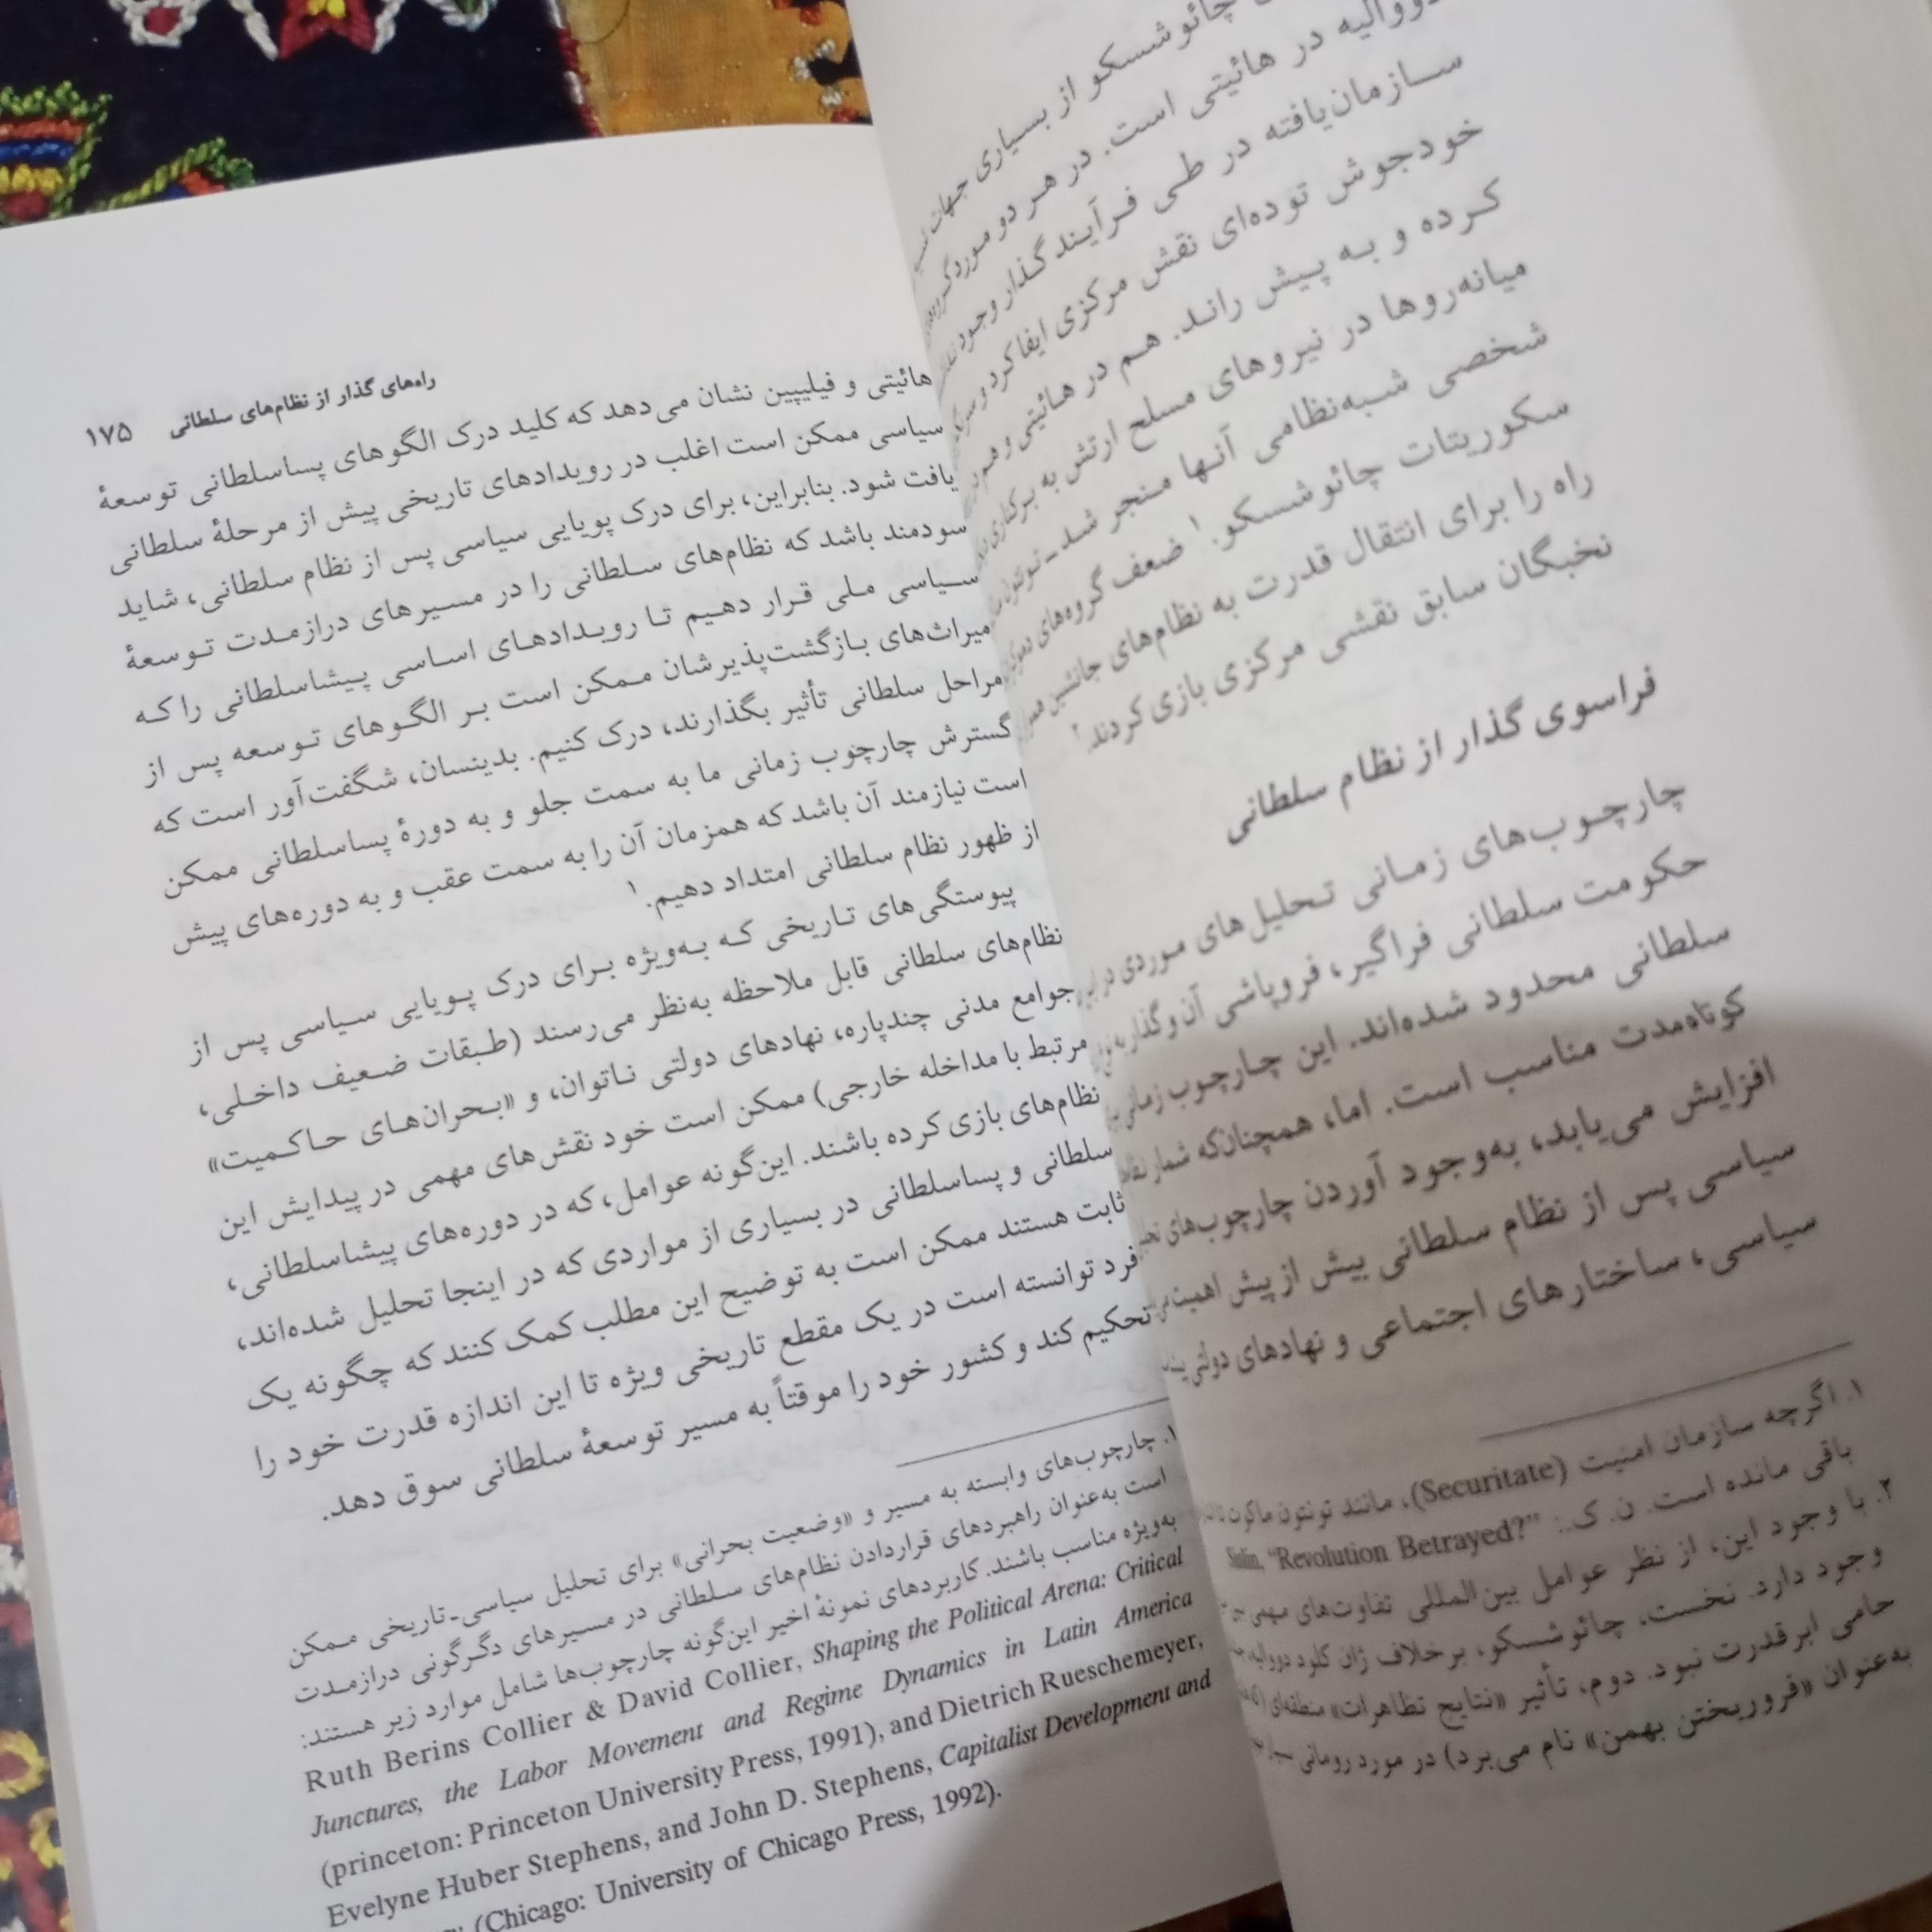 چائوشسکو از بسیاری جهات
دووالیه در هائیتی است. در هر دو مورد
سازمان‌یافته در طی فرآیند گذار وجود
خودجوش توده‌ای نقش مرکزی ایفا کرد و
کرده و به پیش راند. هم در هائیتی و هم
میانه‌روها در نیروهای مسلح ارتش به برکناری
شخصی شبه‌نظامی آنها منجر شد-تونتون
سکوریتات چائوشسکو.۱ ضعف گروه‌های
راه را برای انتقال قدرت به نظام‌های جانشین
نخبگان سابق نقشی مرکزی بازی کردند.۲
فراسوی گذار از نظام سلطانی
چارچوب‌های زمانی تحلیل‌های موردی در
حکومت سلطانی فراگیر، فروپاشی آن و گذار به
سلطانی محدود شده‌اند. این چارچوب زمانی
کوتاه‌مدت مناسب است. اما، همچنان‌که شمار
افزایش می‌یابد، به‌وجود آوردن چارچوب‌های
سیاسی پس از نظام سلطانی بیش از پیش اهمیت
سیاسی، ساختارهای اجتماعی و نهادهای دولتی
۱. اگرچه سازمان امنیت (Securitate)، مانند تونتون ماکوت
باقی مانده است. ن. ک.: "Revolution Betrayed?"
۲. با وجود این، از نظر عوامل بین‌المللی تفاوت‌های مهمی بین
وجود دارد. نخست، چائوشسکو، برخلاف ژان کلود دووالیه،
حامی ابرقدرت نبود. دوم، تأثیر «نتایج تظاهرات» منطقه‌ای
به‌عنوان «فروریختن بهمن» نام می‌برد) در مورد رومانی
راه‌های گذار از نظام‌های سلطانی ۱۷۵
هائیتی و فیلیپین نشان می‌دهد که کلید درک الگوهای پساسلطانی توسعهٔ
سیاسی ممکن است اغلب در رویدادهای تاریخی پیش از مرحلهٔ سلطانی
یافت شود. بنابراین، برای درک پویایی سیاسی پس از نظام سلطانی، شاید
سودمند باشد که نظام‌های سلطانی را در مسیرهای درازمدت توسعهٔ
سیاسی ملی قرار دهیم تا رویدادهای اساسی پیشاسلطانی را که
میراث‌های بازگشت‌پذیرشان ممکن است بر الگوهای توسعه پس از
مراحل سلطانی تأثیر بگذارند، درک کنیم. بدینسان، شگفت‌آور است که
گسترش چارچوب زمانی ما به سمت جلو و به دورهٔ پساسلطانی ممکن
است نیازمند آن باشد که همزمان آن را به سمت عقب و به دوره‌های پیش
از ظهور نظام سلطانی امتداد دهیم.۱
پیوستگی‌های تاریخی که به‌ویژه برای درک پویایی سیاسی پس از
نظام‌های سلطانی قابل ملاحظه به‌نظر می‌رسند (طبقات ضعیف داخلی،
جوامع مدنی چندپاره، نهادهای دولتی ناتوان، و «بحران‌های حاکمیت»
مرتبط با مداخله خارجی) ممکن است خود نقش‌های مهمی در پیدایش این
نظام‌های بازی کرده باشند. این‌گونه عوامل، که در دوره‌های پیشاسلطانی،
سلطانی و پساسلطانی در بسیاری از مواردی که در اینجا تحلیل شده‌اند،
ثابت هستند ممکن است به توضیح این مطلب کمک کنند که چگونه یک
فرد توانسته است در یک مقطع تاریخی ویژه تا این اندازه قدرت خود را
تحکیم کند و کشور خود را موقتاً به مسیر توسعهٔ سلطانی سوق دهد.
۱. چارچوب‌های وابسته به مسیر و «وضعیت بحرانی» برای تحلیل سیاسی-تاریخی ممکن
است به‌عنوان راهبردهای قراردادن نظام‌های سلطانی در مسیرهای دگرگونی درازمدت
به‌ویژه مناسب باشند. کاربردهای نمونهٔ اخیر این‌گونه چارچوب‌ها شامل موارد زیر هستند:
Ruth Berins Collier & David Collier, Shaping the Political Arena: Critical
Junctures, the Labor Movement and Regime Dynamics in Latin America
(princeton: Princeton University Press, 1991), and Dietrich Rueschemeyer,
Evelyne Huber Stephens, and John D. Stephens, Capitalist Development and
(Chicago: University of Chicago Press, 1992).